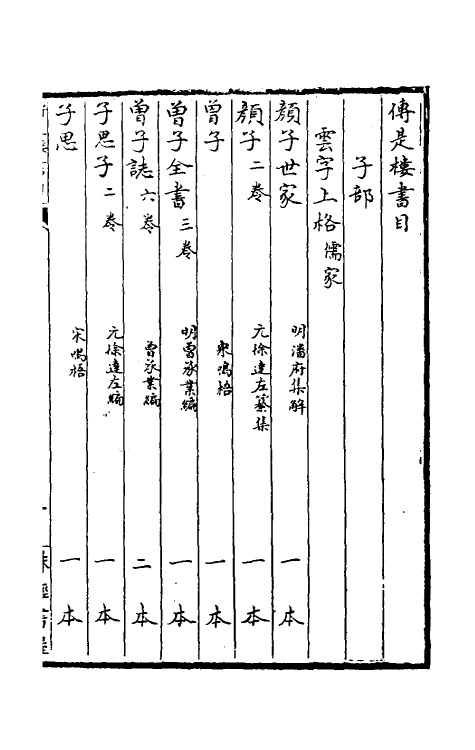 傳是樓書目
子部
雲字上格儒家
顏子世家 明潘府集解 一本
顏子二卷 元徐達左纂集 一本
曾子 宋鳴梧 一本
曾子全書三卷 明曾承業編 一本
曾子誌六卷 曾承業編 二本
子思子二卷 元徐達左編 一本
子思 宋鳴梧 一本